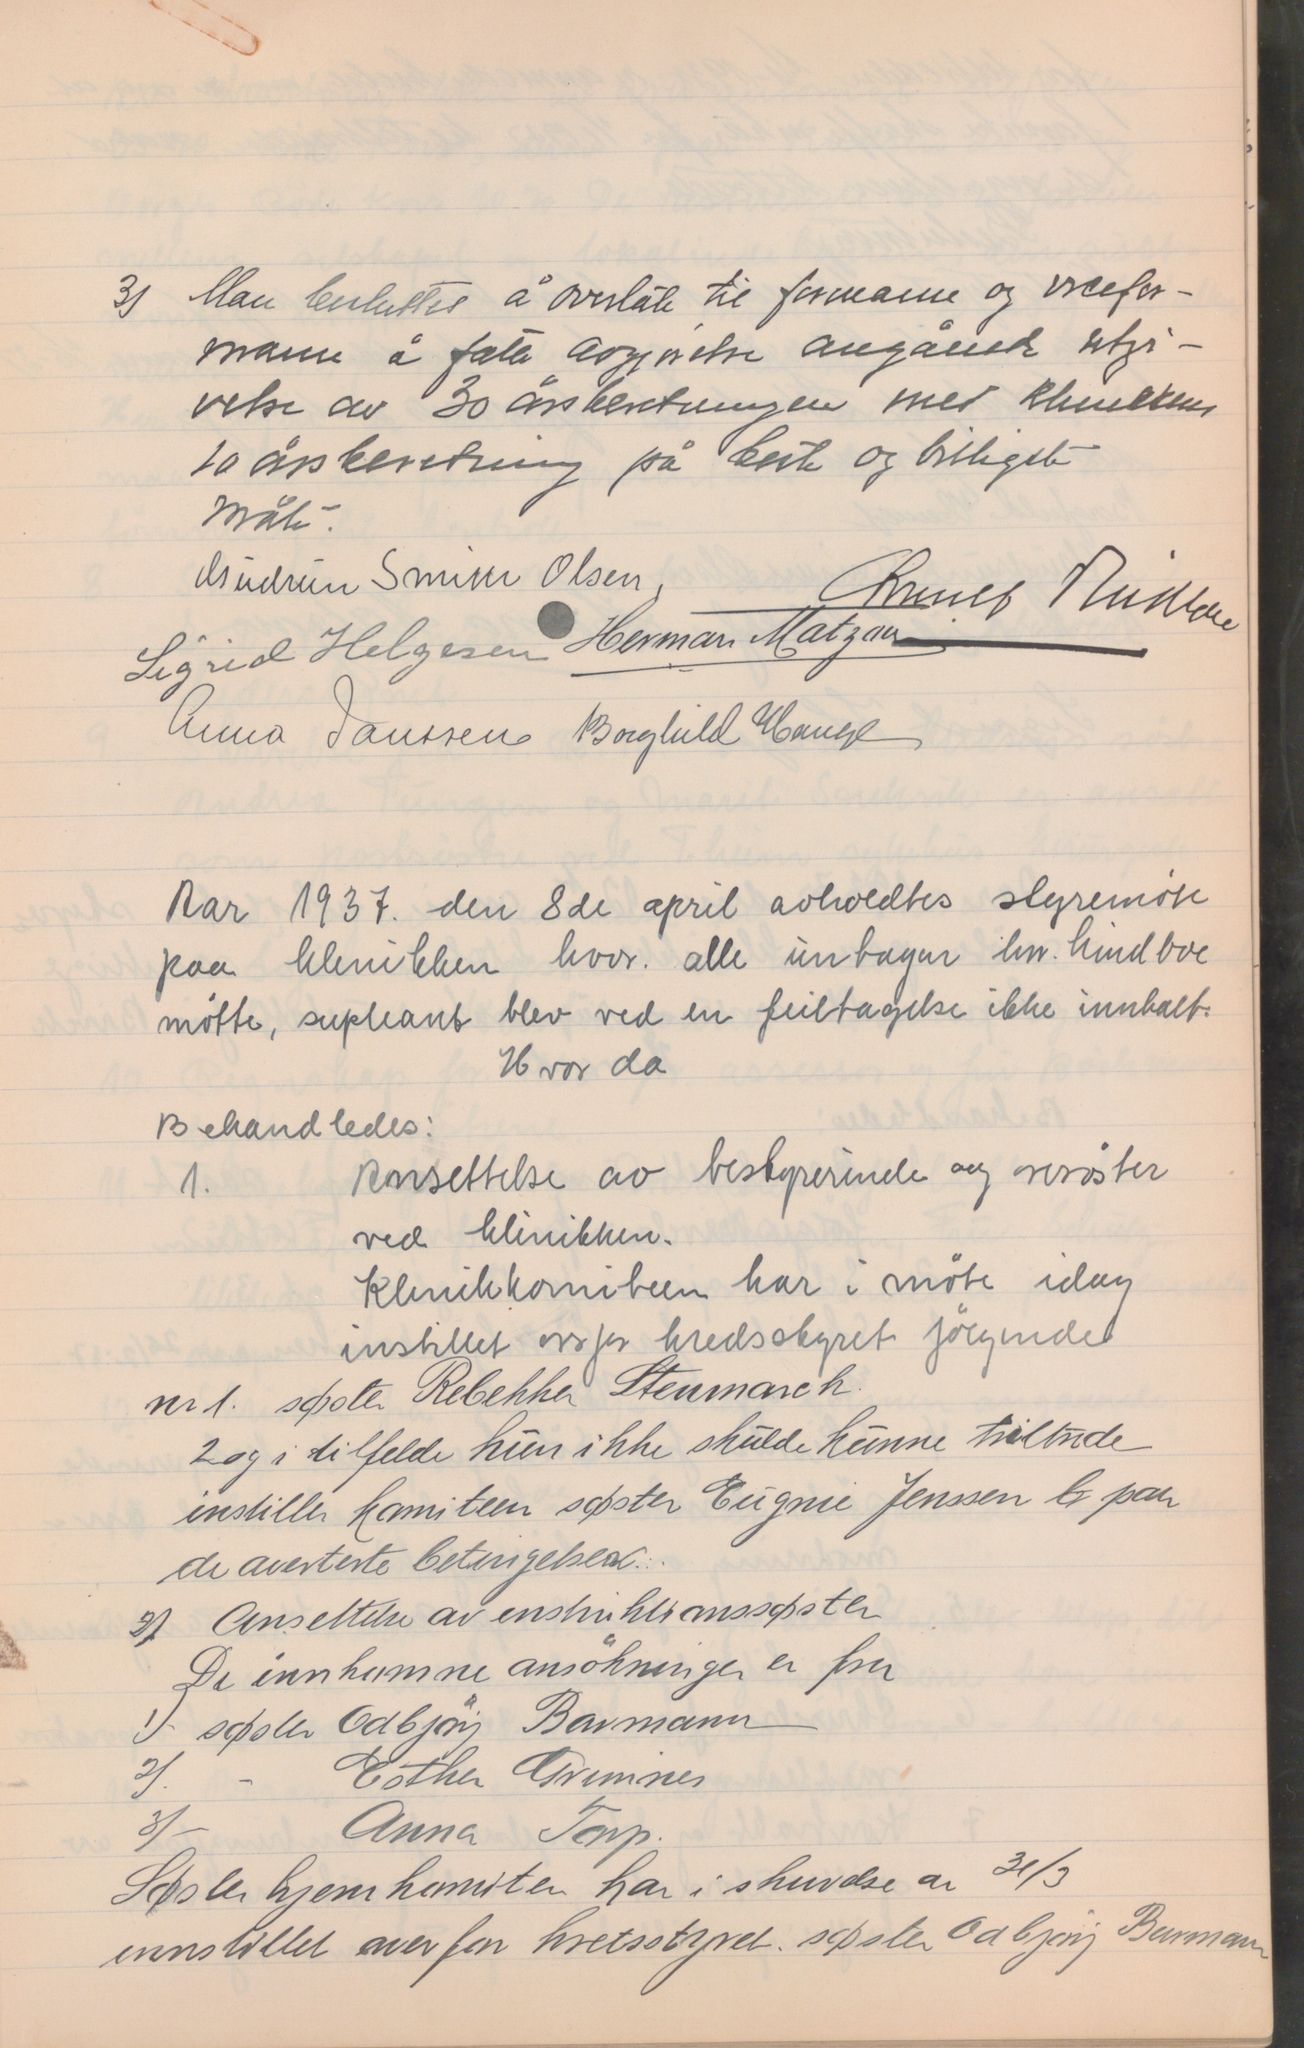 3) Man besluttet å overlate til formann og vicefor-
mann å fatte avgjørelse angående utgi-
velse av 30 årsberetningen med klinikkens
10 årsberetning på beste og billigste
måte.
Gudrun Smith Olsen,
Sigrid Helgesen Herman Matzau
Anna Janssen Borghild Hauge
Aar 1937. den 8de april avholdtes styremöte
paa klinikken hvor. alle untagen hr. Lindboe
mötte, supleant blev ved en feiltagelse ikke innkalt.
Hvor da
Behandledes:
1. Ansettelse av bestyrerinde og sersöster
ved klinikken.
Klinikkomiteen har i möte idag
instillet ovfor kredsstyret fölgende
nr 1. søster Rebekka Stenmarck.
2 og i tilfelde hun ikke skulde kunne tiltrede
instiller komiteen søster Eugnie Jenssen paa
de averterte betingelser.
2) Ansettelse av enstruktionssøster
De innkomne ansökninger er fra
1)- søster Odbjörg Barmann
2). - Esther Grimnes
3)- Anna Torp.
Søsterhjemkomiten har i skrivelse av 31/3
innstillet overfor kretsstyret. søster Odbjörg Barmann